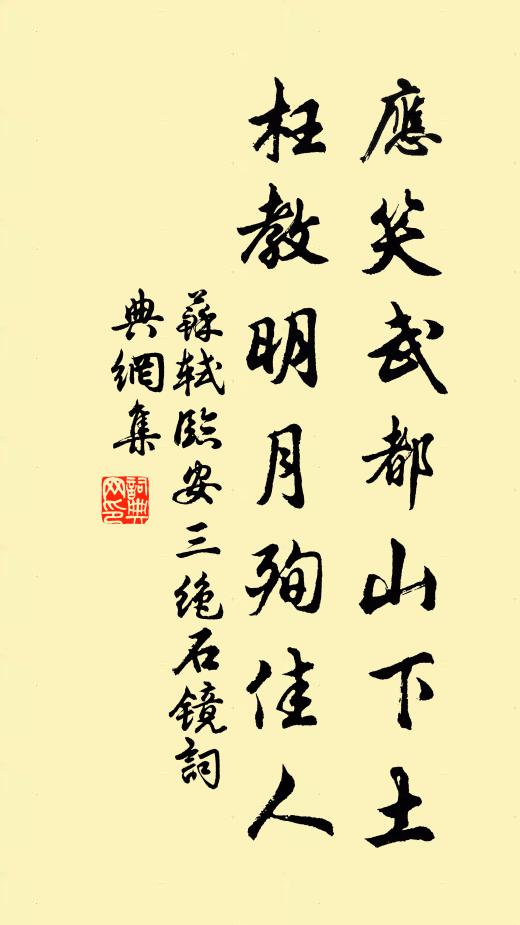 應笑武都山下土
枉教明月殉佳人
蘇軾臨安三絶石鏡詞
典網集
詞典
网印